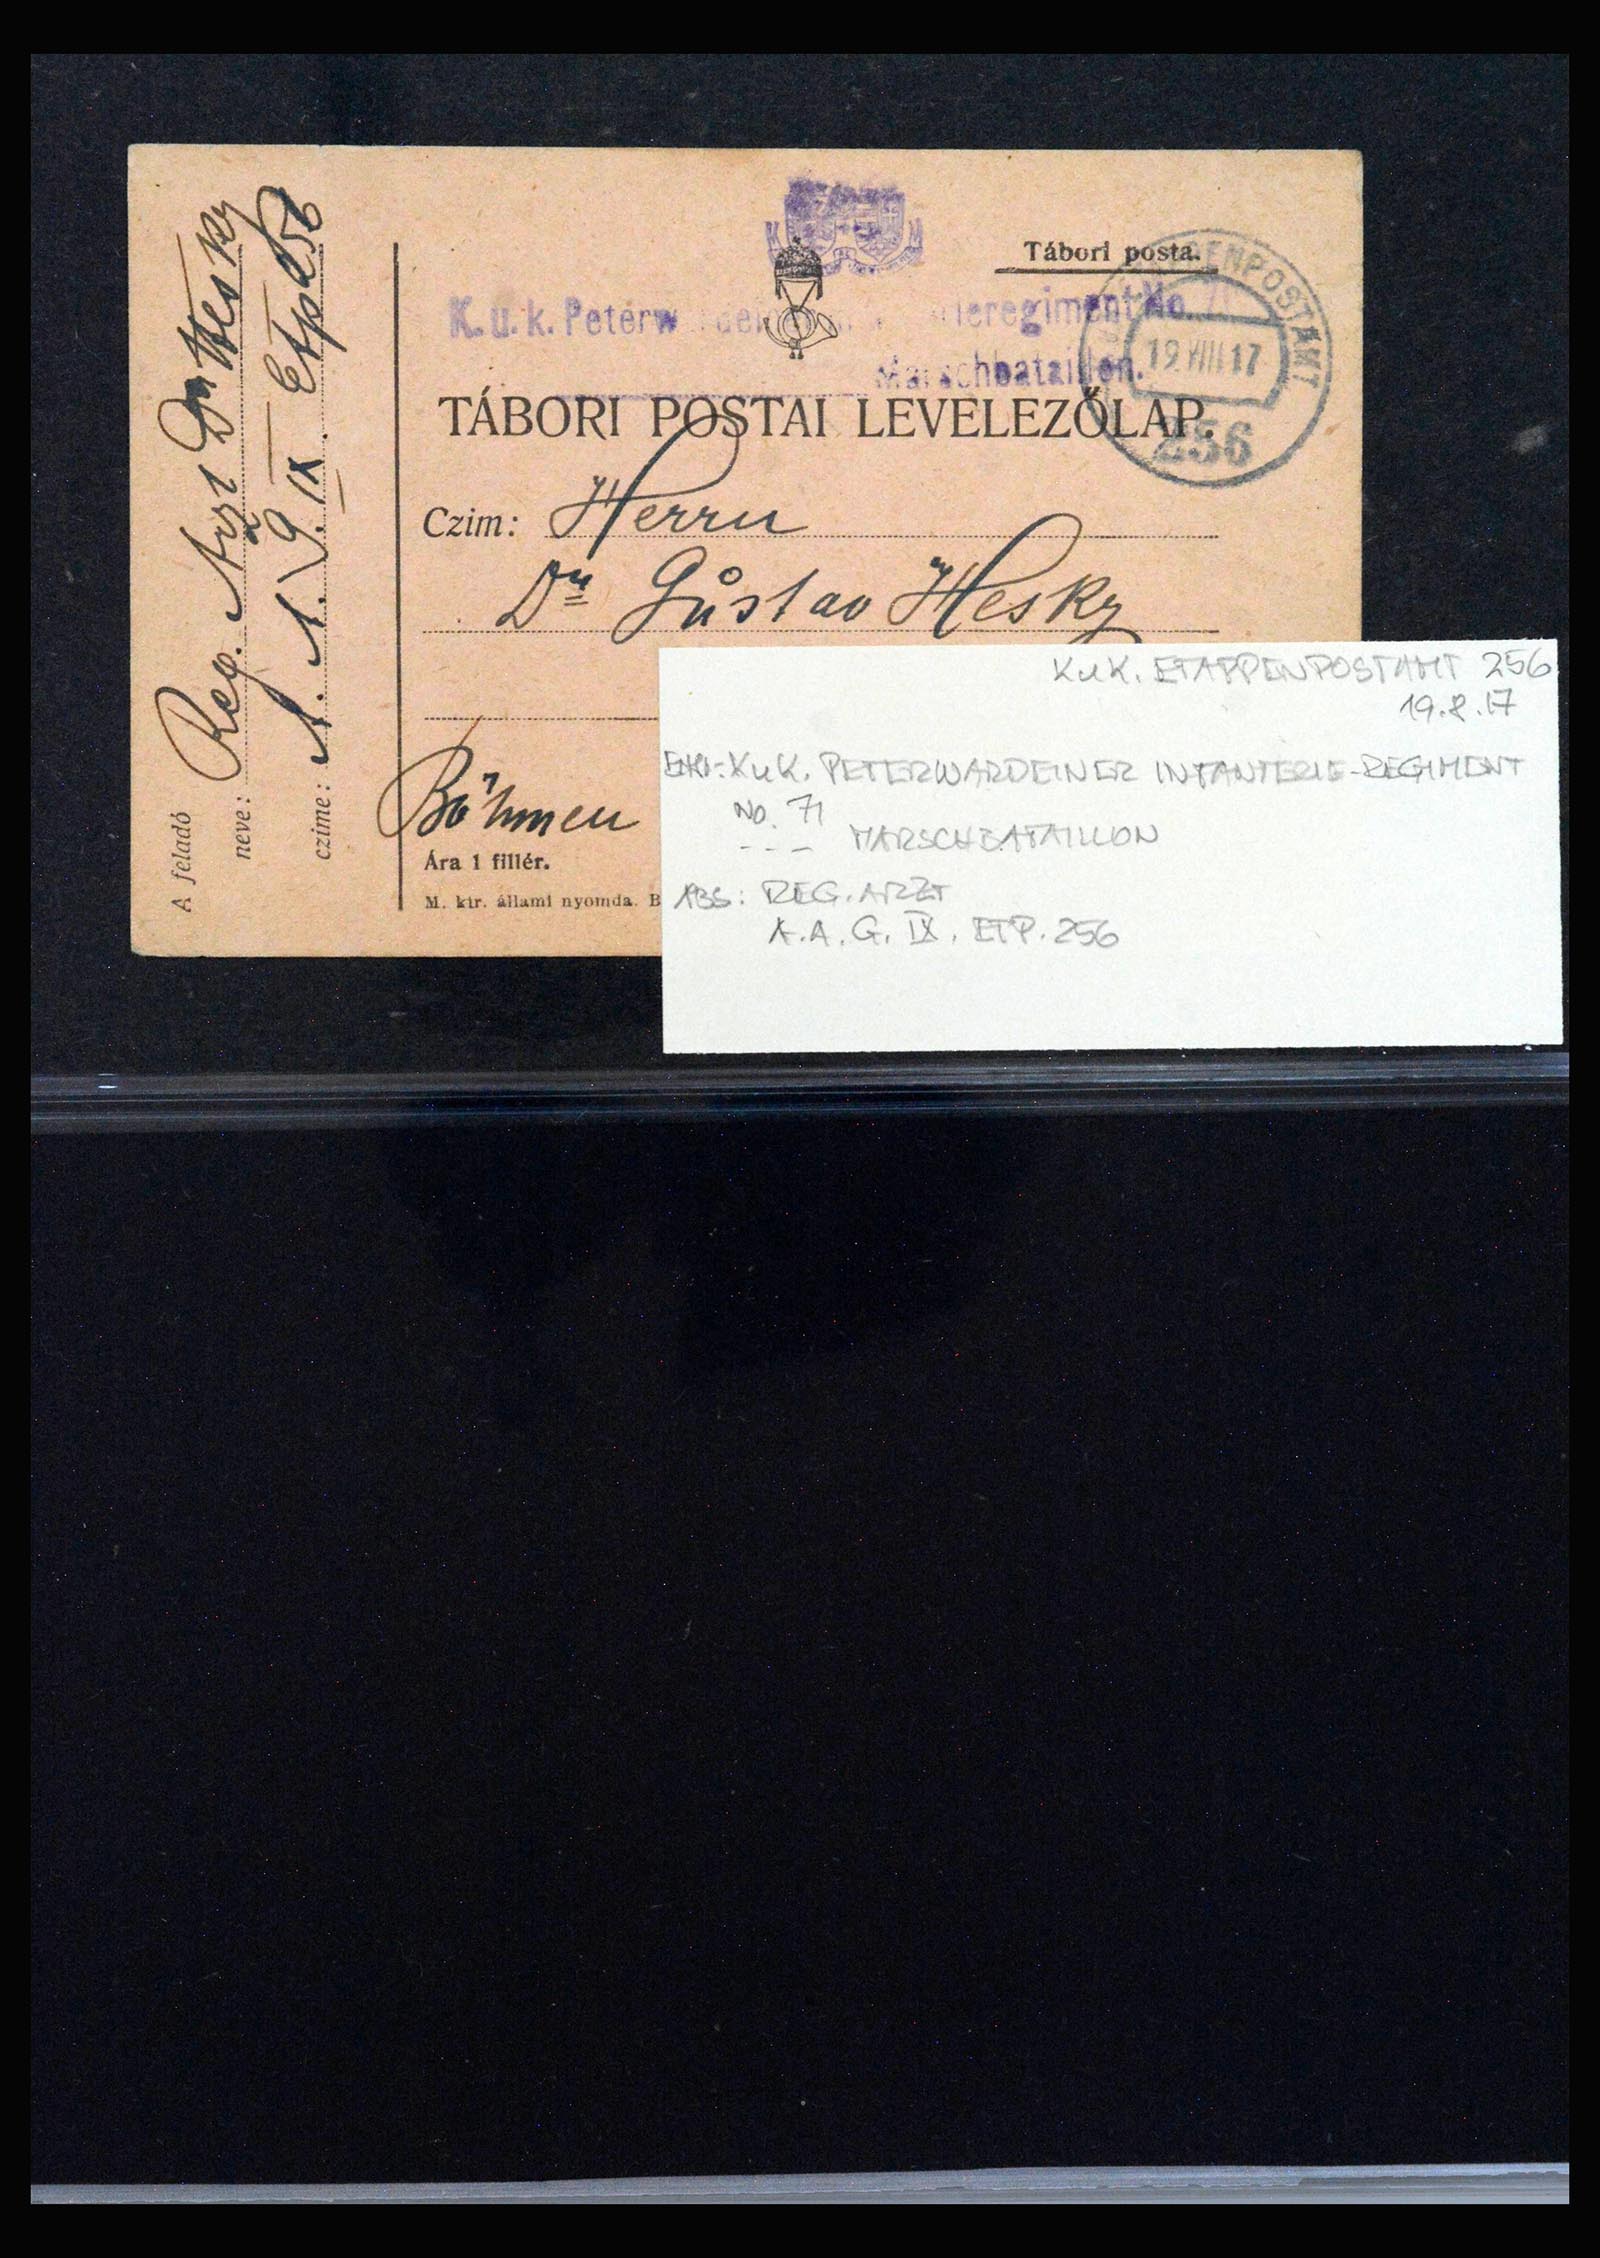 Tábori posta.
K.u.k. Peterw
ieregiment No. 7
Marschbataillon.
ENPOSTAMT
19 VIII 17
256
TÁBORI POSTAI LEVELEZŐLAP.
Czim: Herrn
Dr Gustav Hesky
Böhmen
Ára 1 fillér.
M. kir. állami nyomda. B
A feladó
neve: Reg. Arzt Dr Hesky
czime: IX. Etp 256
K.u.K. ETAPPENPOSTAMT 256
19.8.17
K.u.K. PETERWARDEINER INFANTERIE-REGIMENT
No. 71
--- MARSCHBATAILLON
ABS: REG. ARZT
K.A.G. IX. ETP. 256